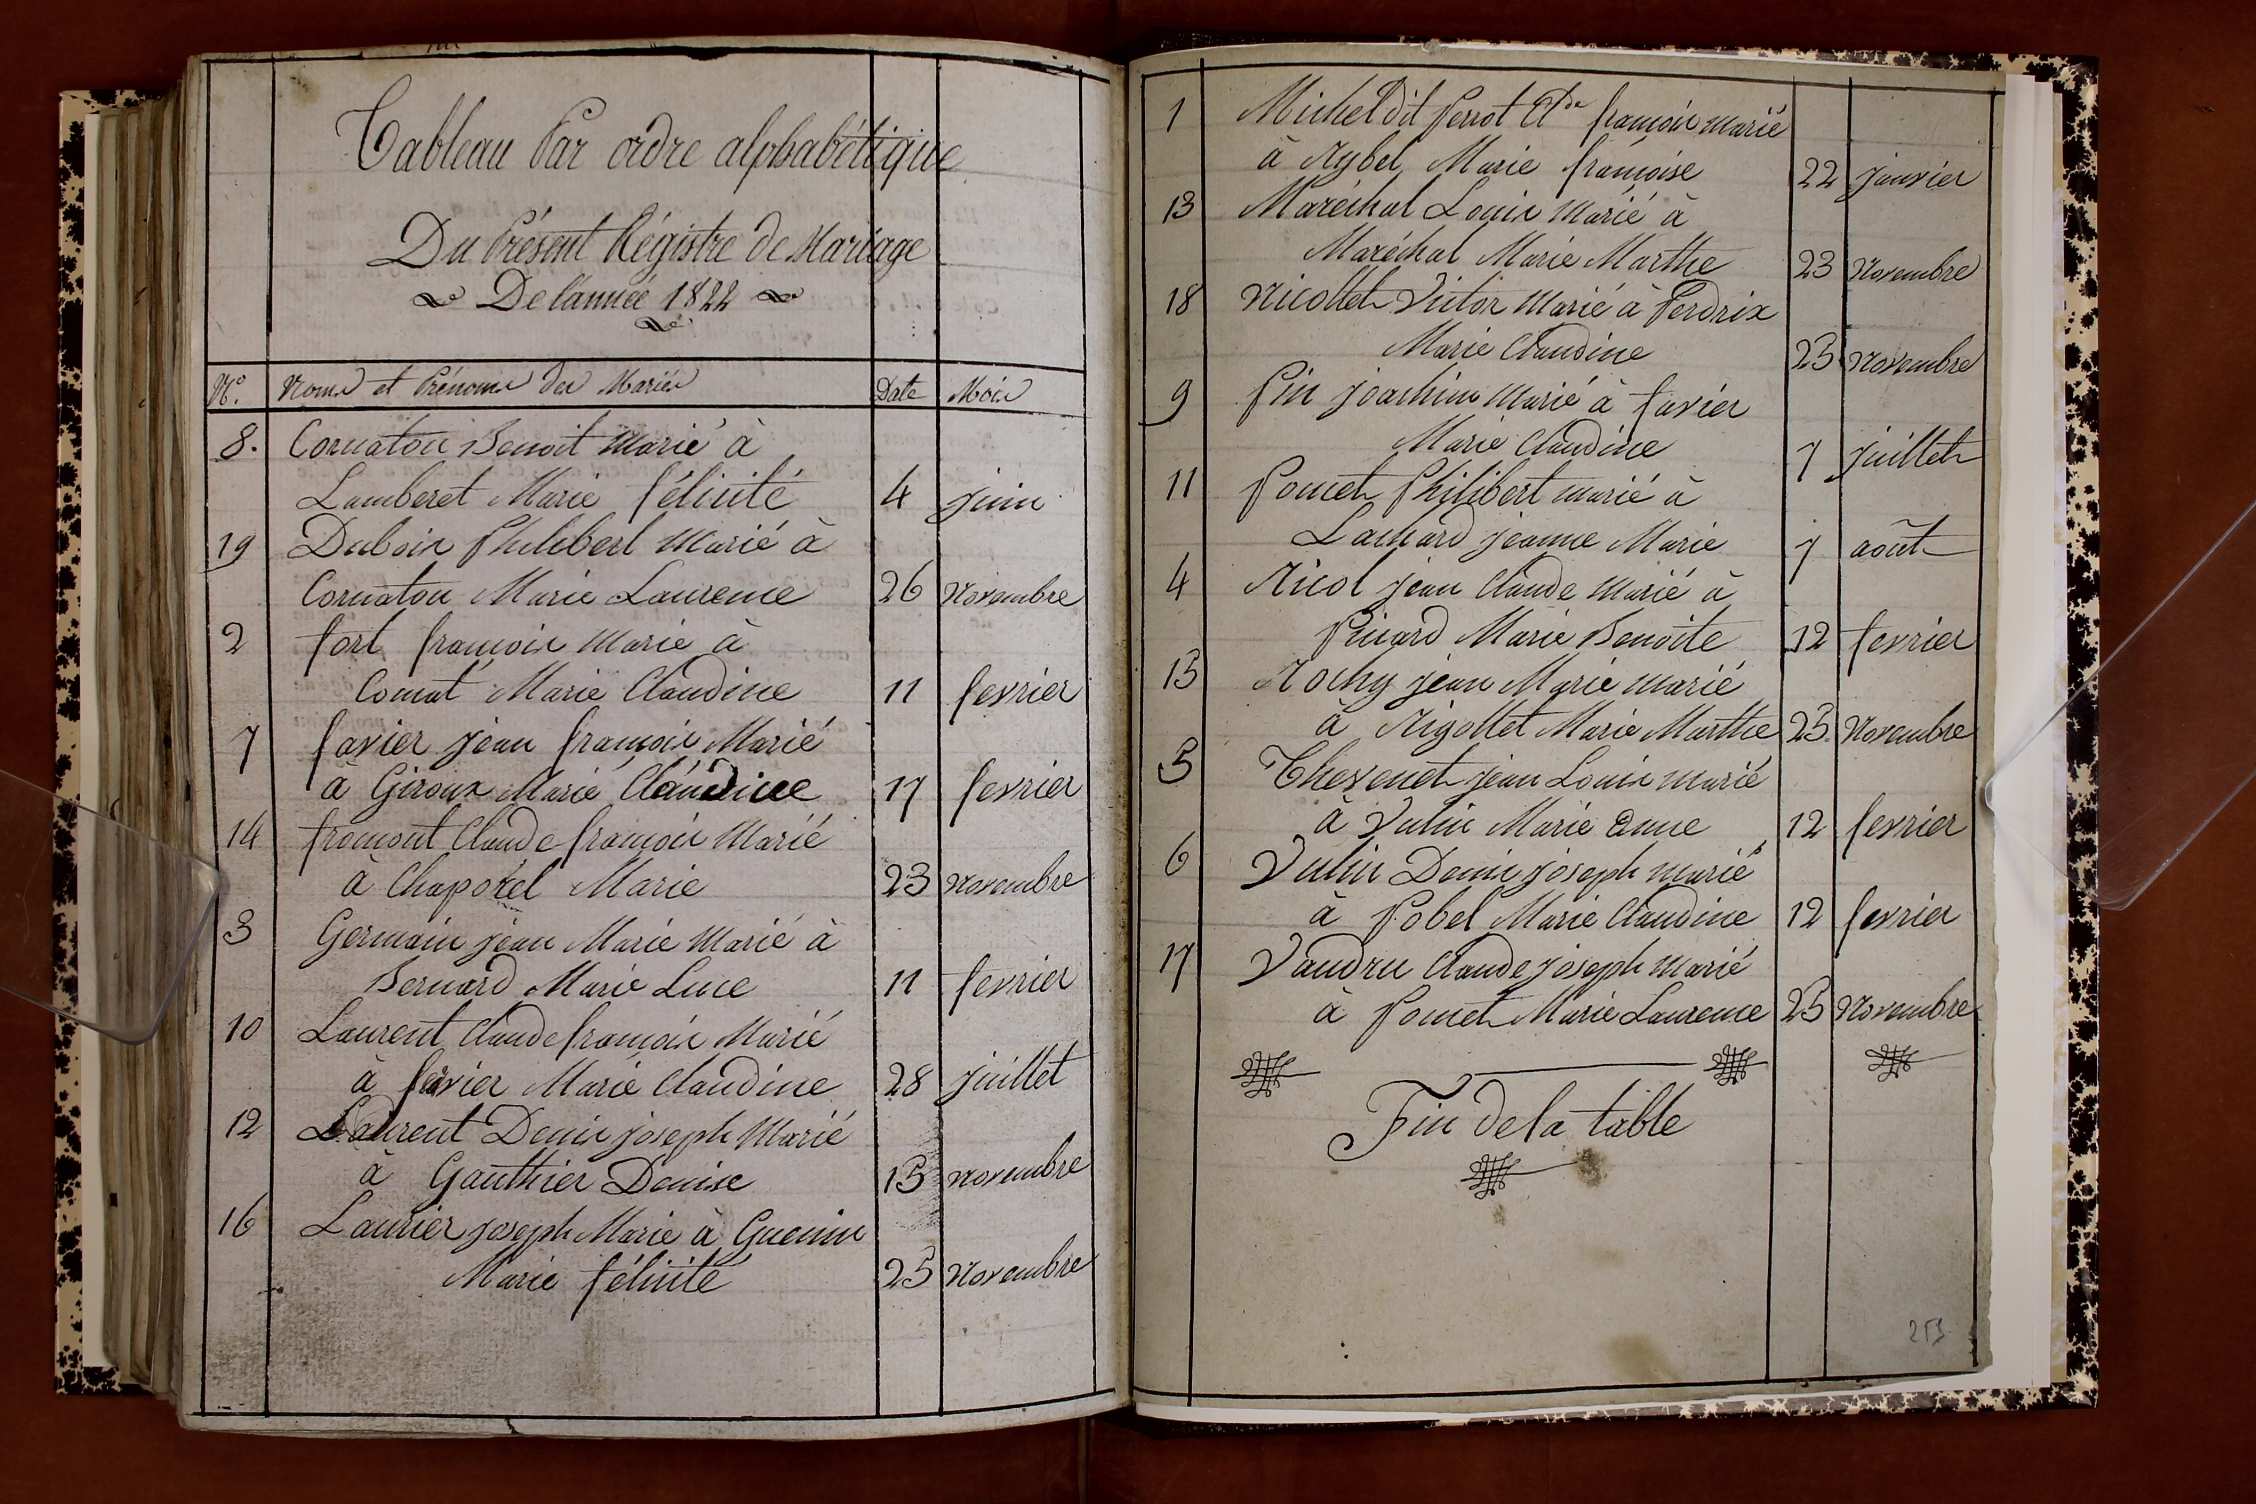 Tableau Par ordre alphabétique
Du Présent Régistre de Mariage
De l'année 1822
N.° Noms et Prénoms des Mariés Date Mois
8. Cornaton Benoit Marié à
Lamberet Marie félicité 4 juin
19 Dubois Philibert Marié à
Cornaton Marie Laurence 26 Novembre
2 fort françois Marie à
Comat Marie Claudine 11 fevrier
7 favier jean françois Marié
à Giroux Marie Claudine 17 fevrier
14 fromont Claude françois Marié
à Chaporel Marie 23 novembre
3 Germain jean Marie Marié à
Bernard Marie Luce 11 fevrier
10 Laurent Claude françois Marié
à favier Marie Claudine 28 juillet
12 Laurent Denis joseph Marié
à Gauthier Denise 13 novembre
16 Laurier joseph Marie à Guenin
Marie félicité 25 Novembre
1 Michel dit perrot Cl.de françois marié
à Rybel Marie françoise 22 janvier
13 Maréchal Louis Marié à
Maréchal Marie Marthe 23 Novembre
18 Nicollet Victor Marié à perdrix
Marie Claudine 25 Novembre
9 pin joachim Marié à favier
Marie Claudine 7 juillet
11 pomet philibert marié à
Lachard jeanne Marie 7 août
4 Ricol jean Claude Marié à
pinard Marie Benoite 12 fevrier
15 Rochy jean Marie marié
à Rigollet Marie Marthe 25 Novembre
5 Thevenet jean Louis marié
à Vulin Marie anne 12 fevrier
6 Vulin Denis joseph marié
à pobel Marie Claudine 12 fevrier
17 Vaudru Claude joseph marié
à pomet Marie Laurence 25 Novembre
Fin de la table
253